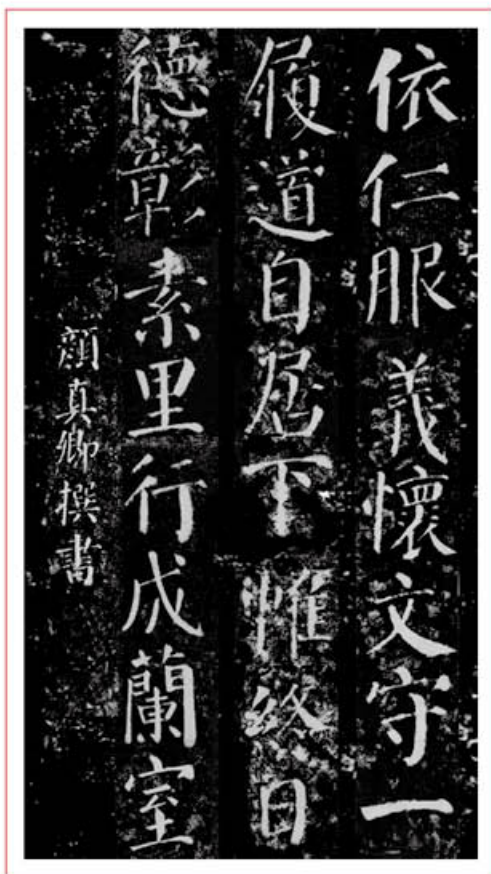 依仁服義懷文守一
履道自居下帷終日
德彰素里行成蘭室
顔真卿撰書